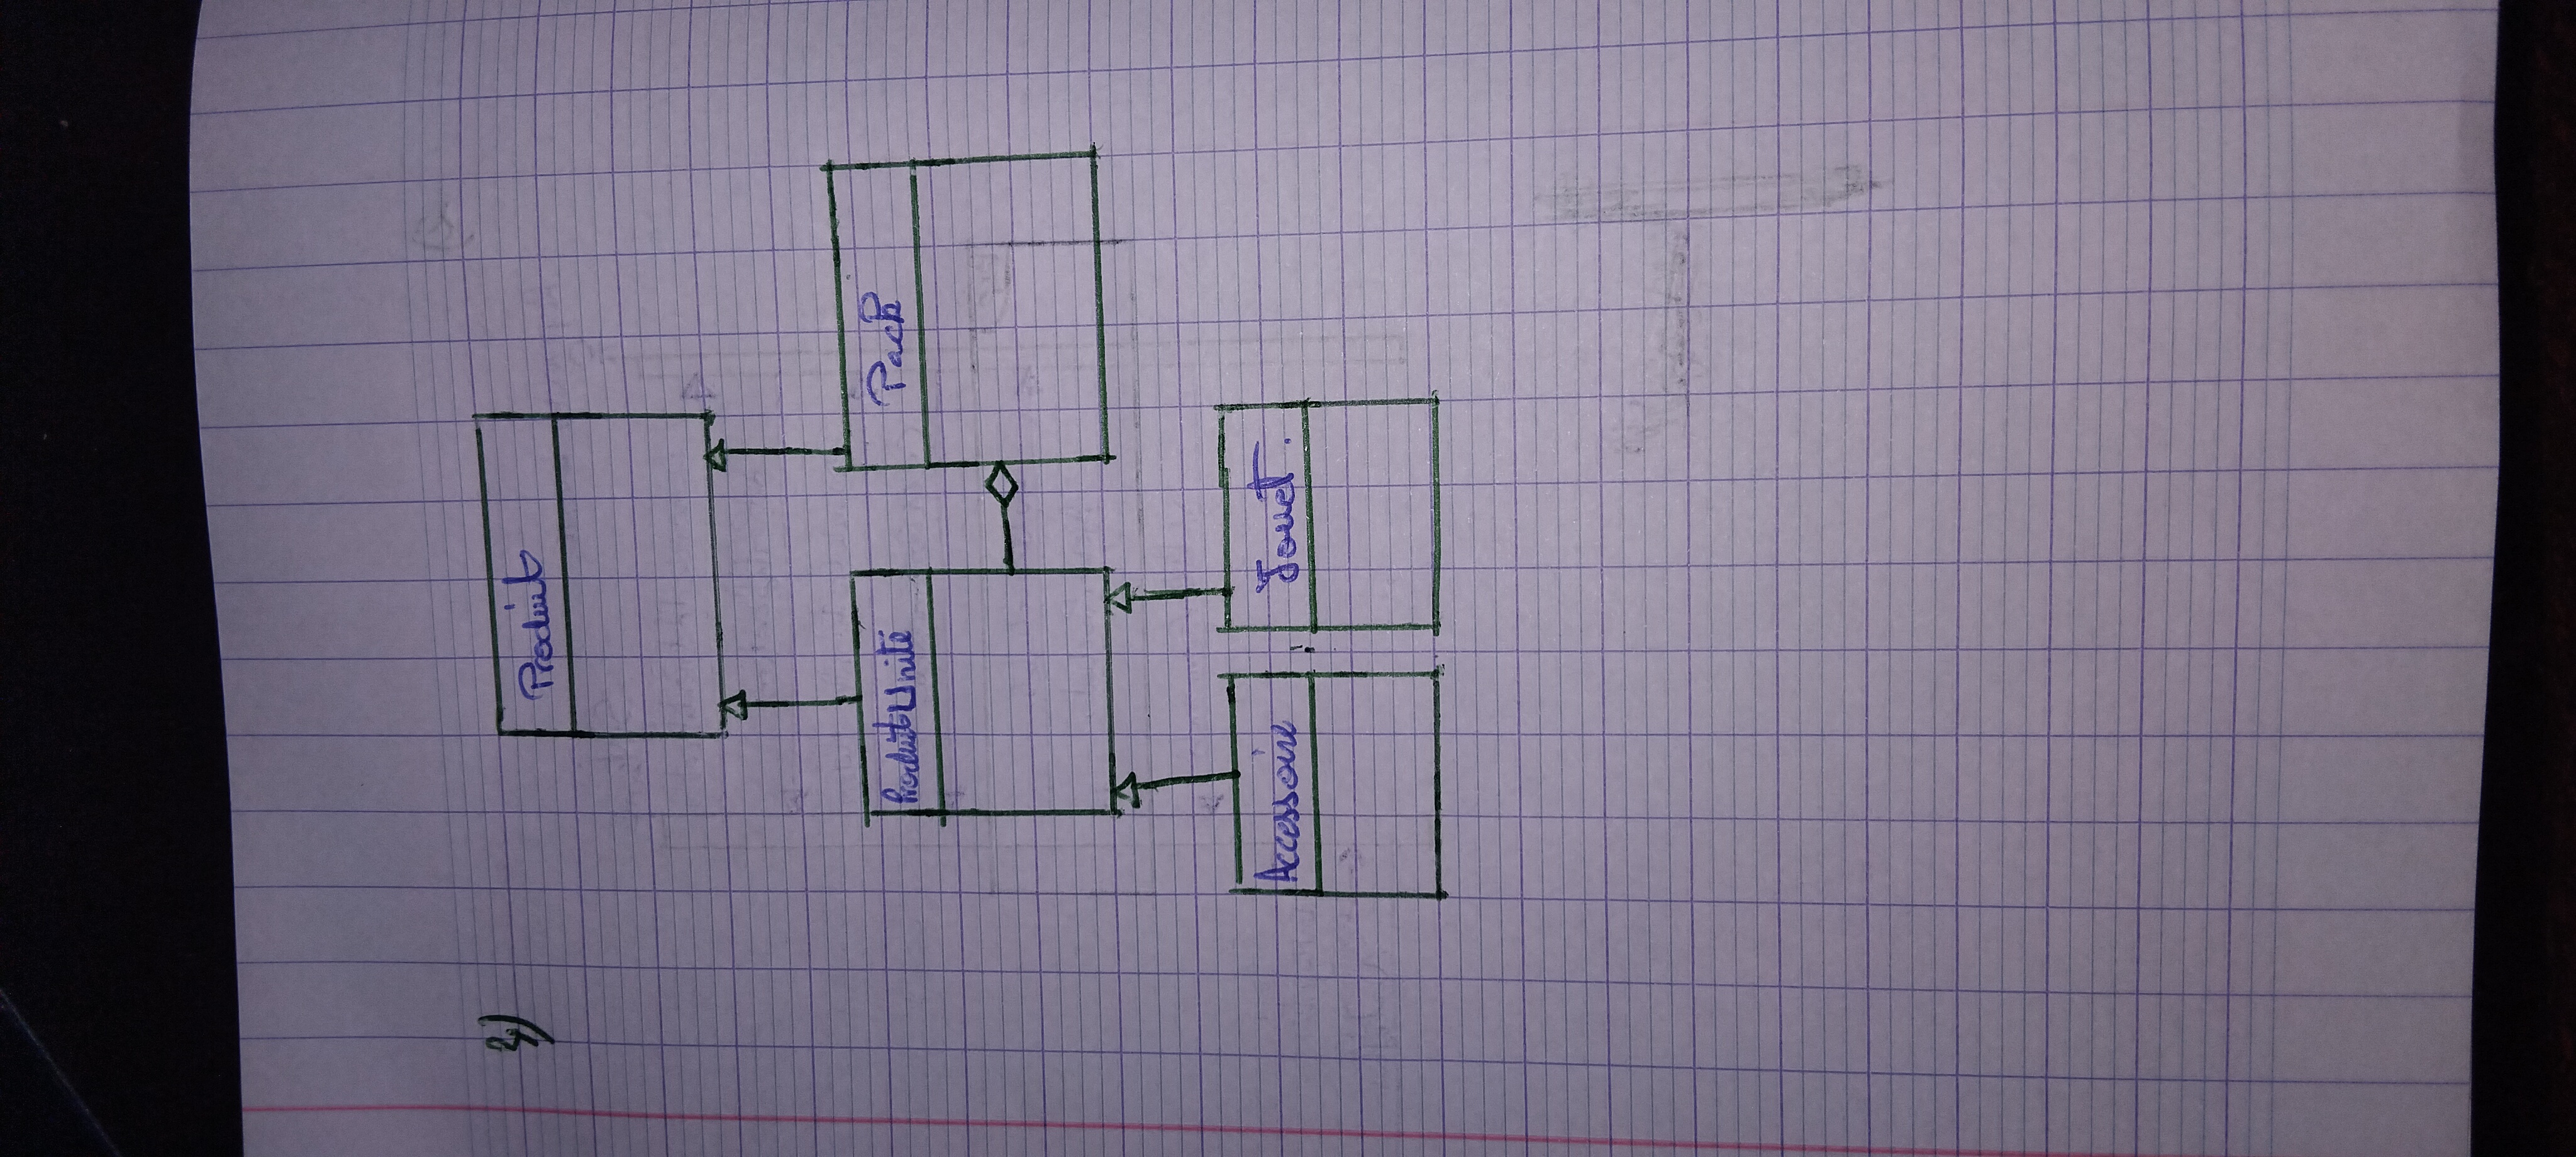 3)
Produit
Produit Unité
Pack
Accessoire
Jouet.